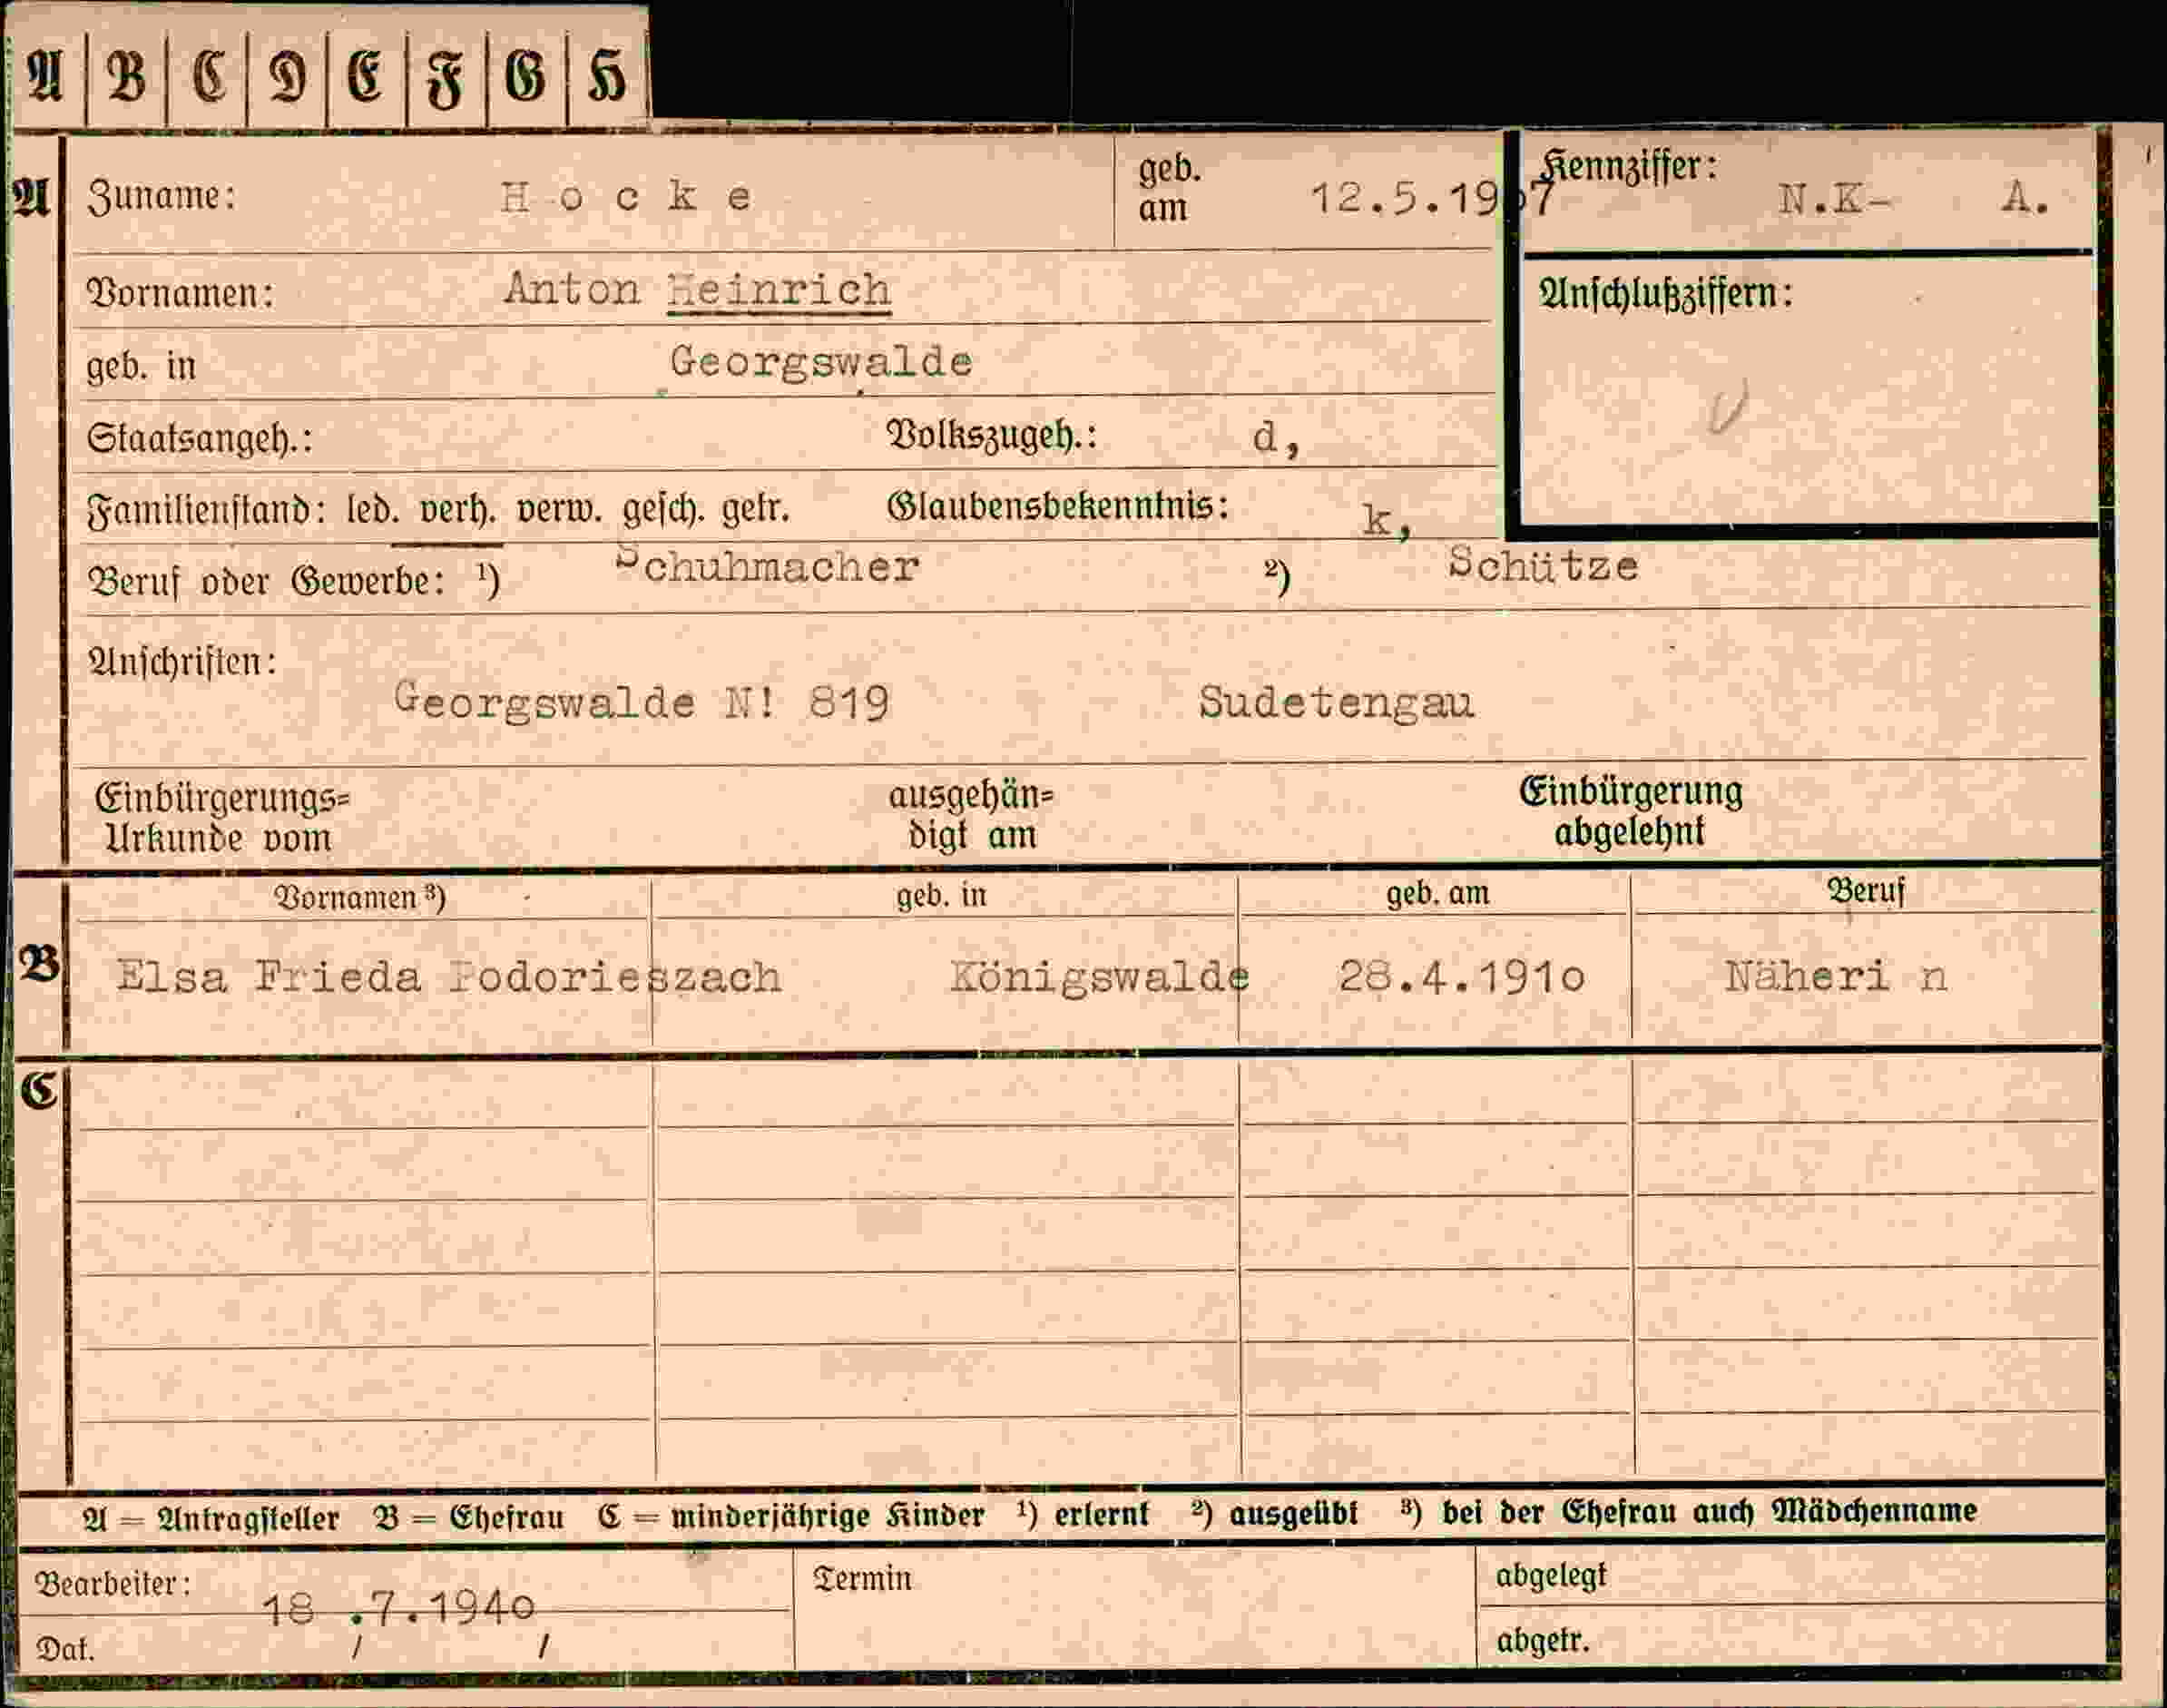 A | B | C | D | E | F | G | H
A Zuname: Hocke geb. am 12.5.1907 Kennziffer: N.K- A.
Vornamen: Anton Heinrich Anschlußziffern:
geb. in Georgswalde
Staatsangeh.: Volkszugeh.: d,
Familienstand: led. verh. verw. gesch. getr. Glaubensbekenntnis: k,
Beruf oder Gewerbe: ¹) Schuhmacher ²) Schütze
Anschriften:
Georgswalde N! 819 Sudetengau
Einbürgerungs= ausgehän= Einbürgerung
Urkunde vom digt am abgelehnt
Vornamen ³) geb. in geb. am Beruf
B Elsa Frieda Podorieszach Königswalde 28.4.191o Näheri n
C
A = Antragsteller B = Ehefrau C = minderjährige Kinder ¹) erlernt ²) ausgeübt ³) bei der Ehefrau auch Mädchenname
Bearbeiter: Termin abgelegt
18 .7.194o
Dat. abgetr.